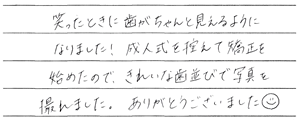 笑ったときに歯がちゃんと見えるように
なりました! 成人式を控えて矯正を
始めたので、きれいな歯並びで写真を
撮れました。 ありがとうございました☺